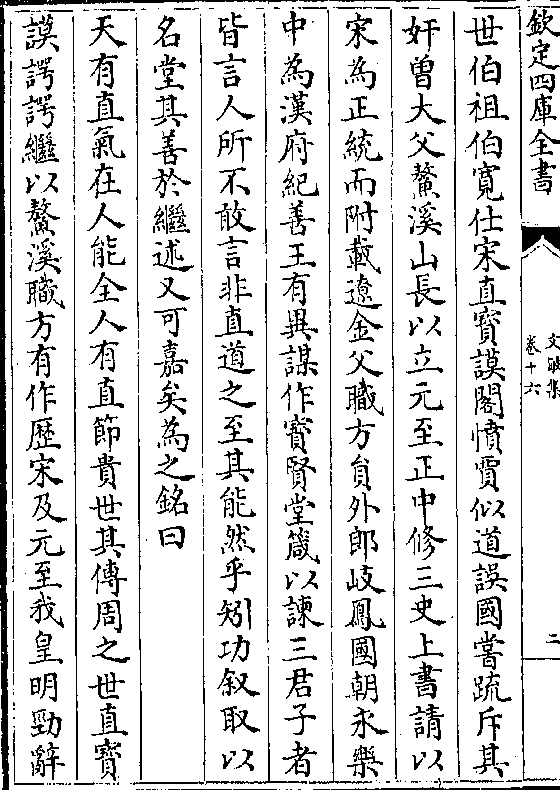 欽定四庫全書
卷十六
二
世伯祖伯寛仕宋直寳謨閣憤賈似道誤國嘗疏斥其
奸曽大父鰲溪山長以立元至正中修三史上書請以
宋為正統而附載遼金父職方員外郎岐鳳國朝永樂
中為漢府紀善王有異謀作寳賢堂箴以諫三君子者
皆言人所不敢言非直道之至其能然乎矧功叙取以
名堂其善於繼述又可嘉矣為之銘曰
天有直氣在人能全人有直節貴世其傳周之世直寳
謨諤諤繼以鰲溪職方有作歴宋及元至我皇明勁辭